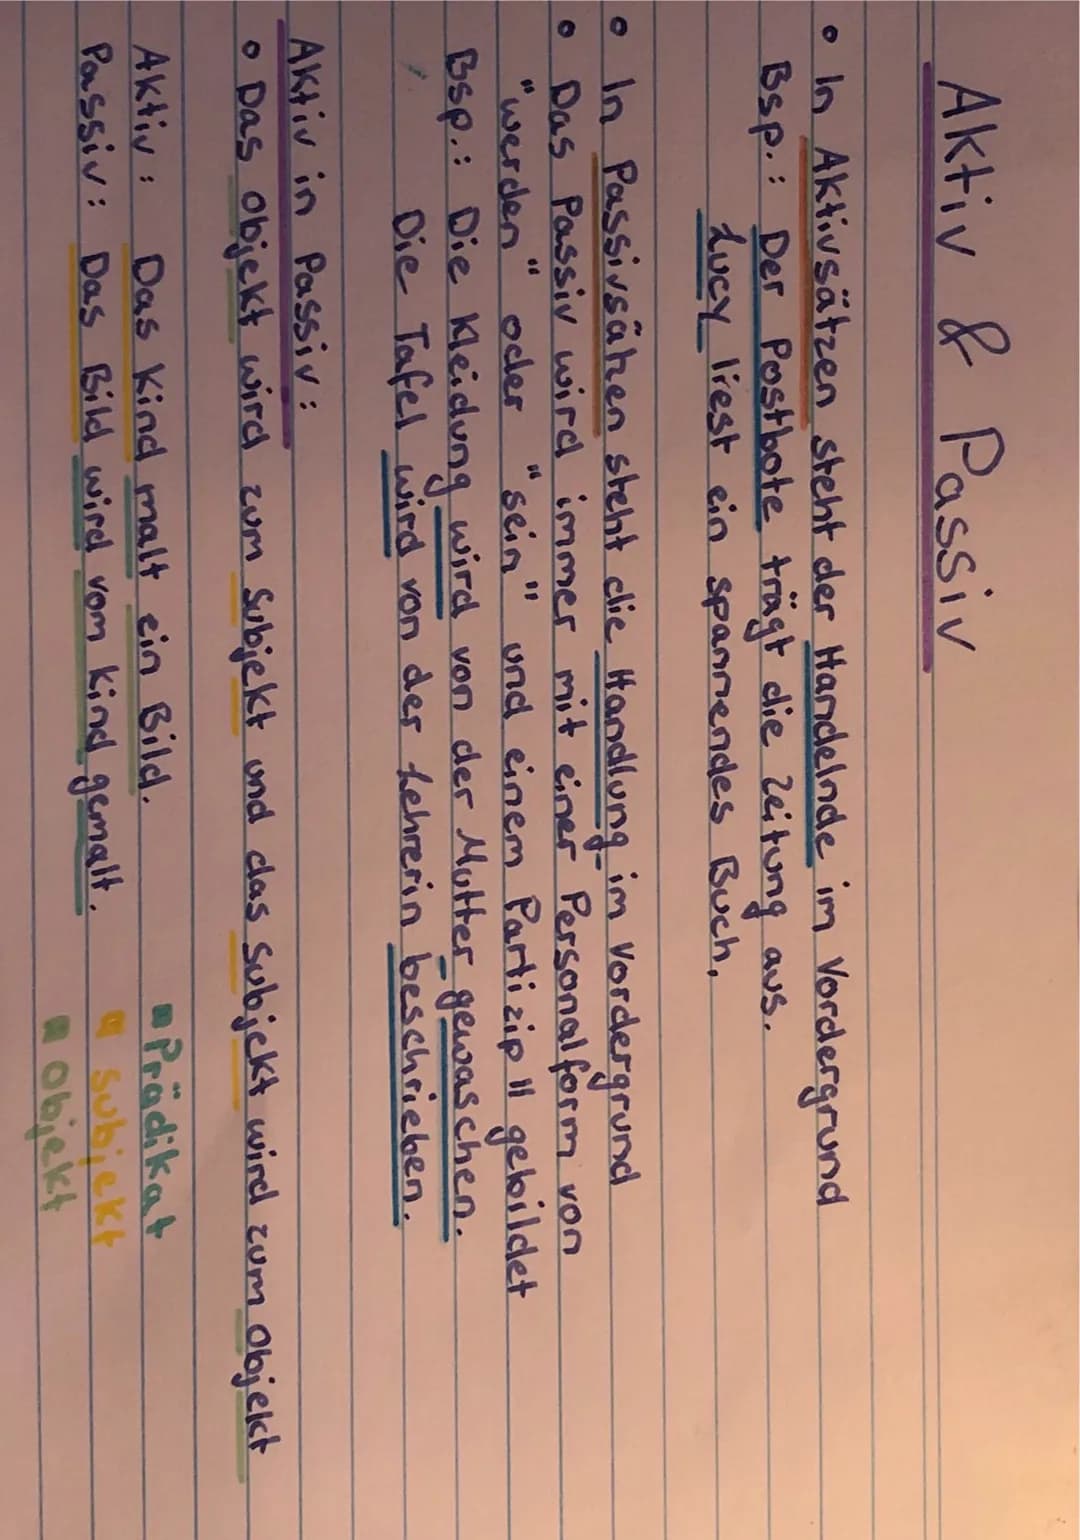 Aktiv & Passiv
• In Aktivsätzen steht der Handelnde im Vordergrund
Bsp.: Der Postbote trägt die Zeitung aus.
Lucy liest ein spannendes Buch.
• In Passivsätzen steht die Handlung im Vordergrund
• Das Passiv wird immer mit einer Personalform von
"werden" oder "sein" und einem Partizip II gebildet
Bsp.: Die Kleidung wird von der Mutter gewaschen.
Die Tafel wird von der Lehrerin beschrieben.
Aktiv in Passiv:
• Das Objekt wird zum Subjekt und das Subjekt wird zum Objekt
Aktiv: Das Kind malt ein Bild.
Passiv: Das Bild wird vom Kind gemalt.
▪ Prädikat
▪ Subjekt
▪ Objekt